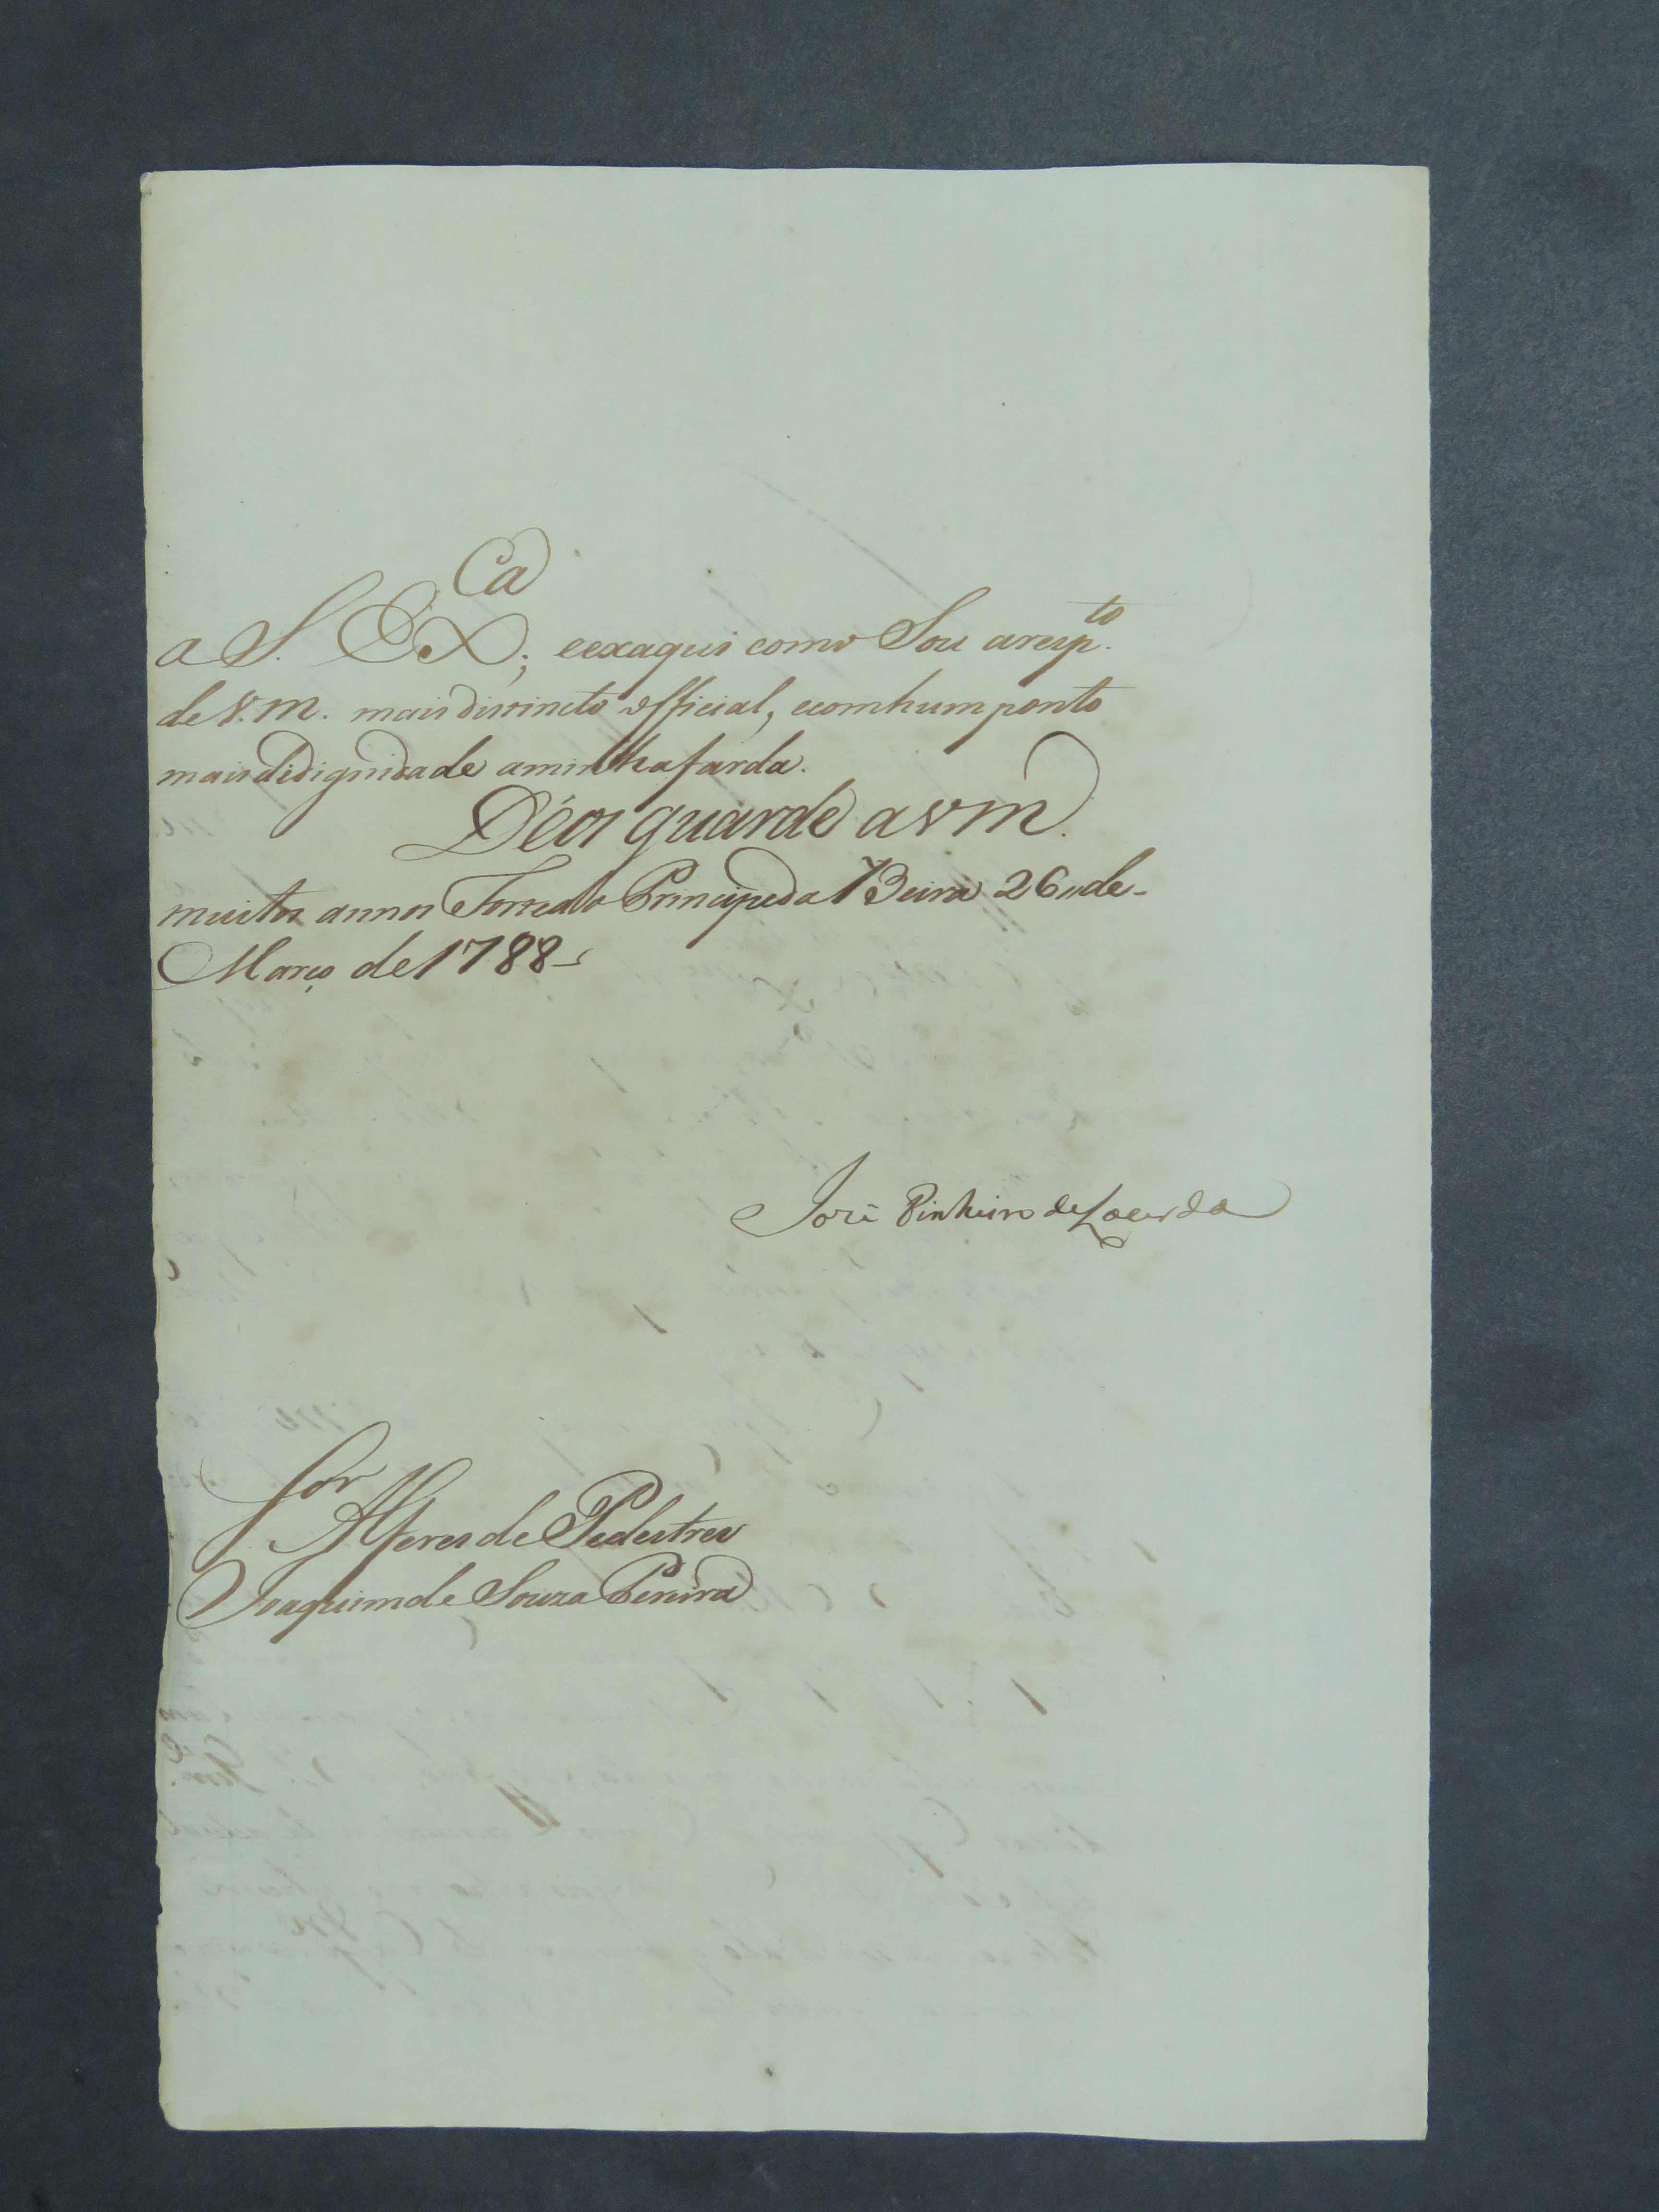 a S. Ex.ca; eexaqui como Sou aresp.to
de V.m. mais distincto official, ecomhum ponto
mais dedignidade aminha farda.
Déos guarde a vm.
muitos annos Forte do Principe da Beira 26,, de
Março de 1788
José Pinheiro de Lacerda
Sor Alferes de Pedestres
Joaquim de Souza Pereira